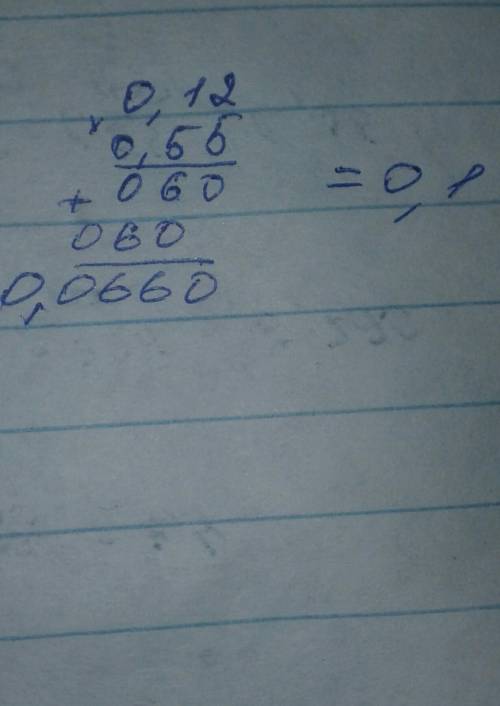 0,12
×
0,55
+ 060 = 0,1
060
0,0660